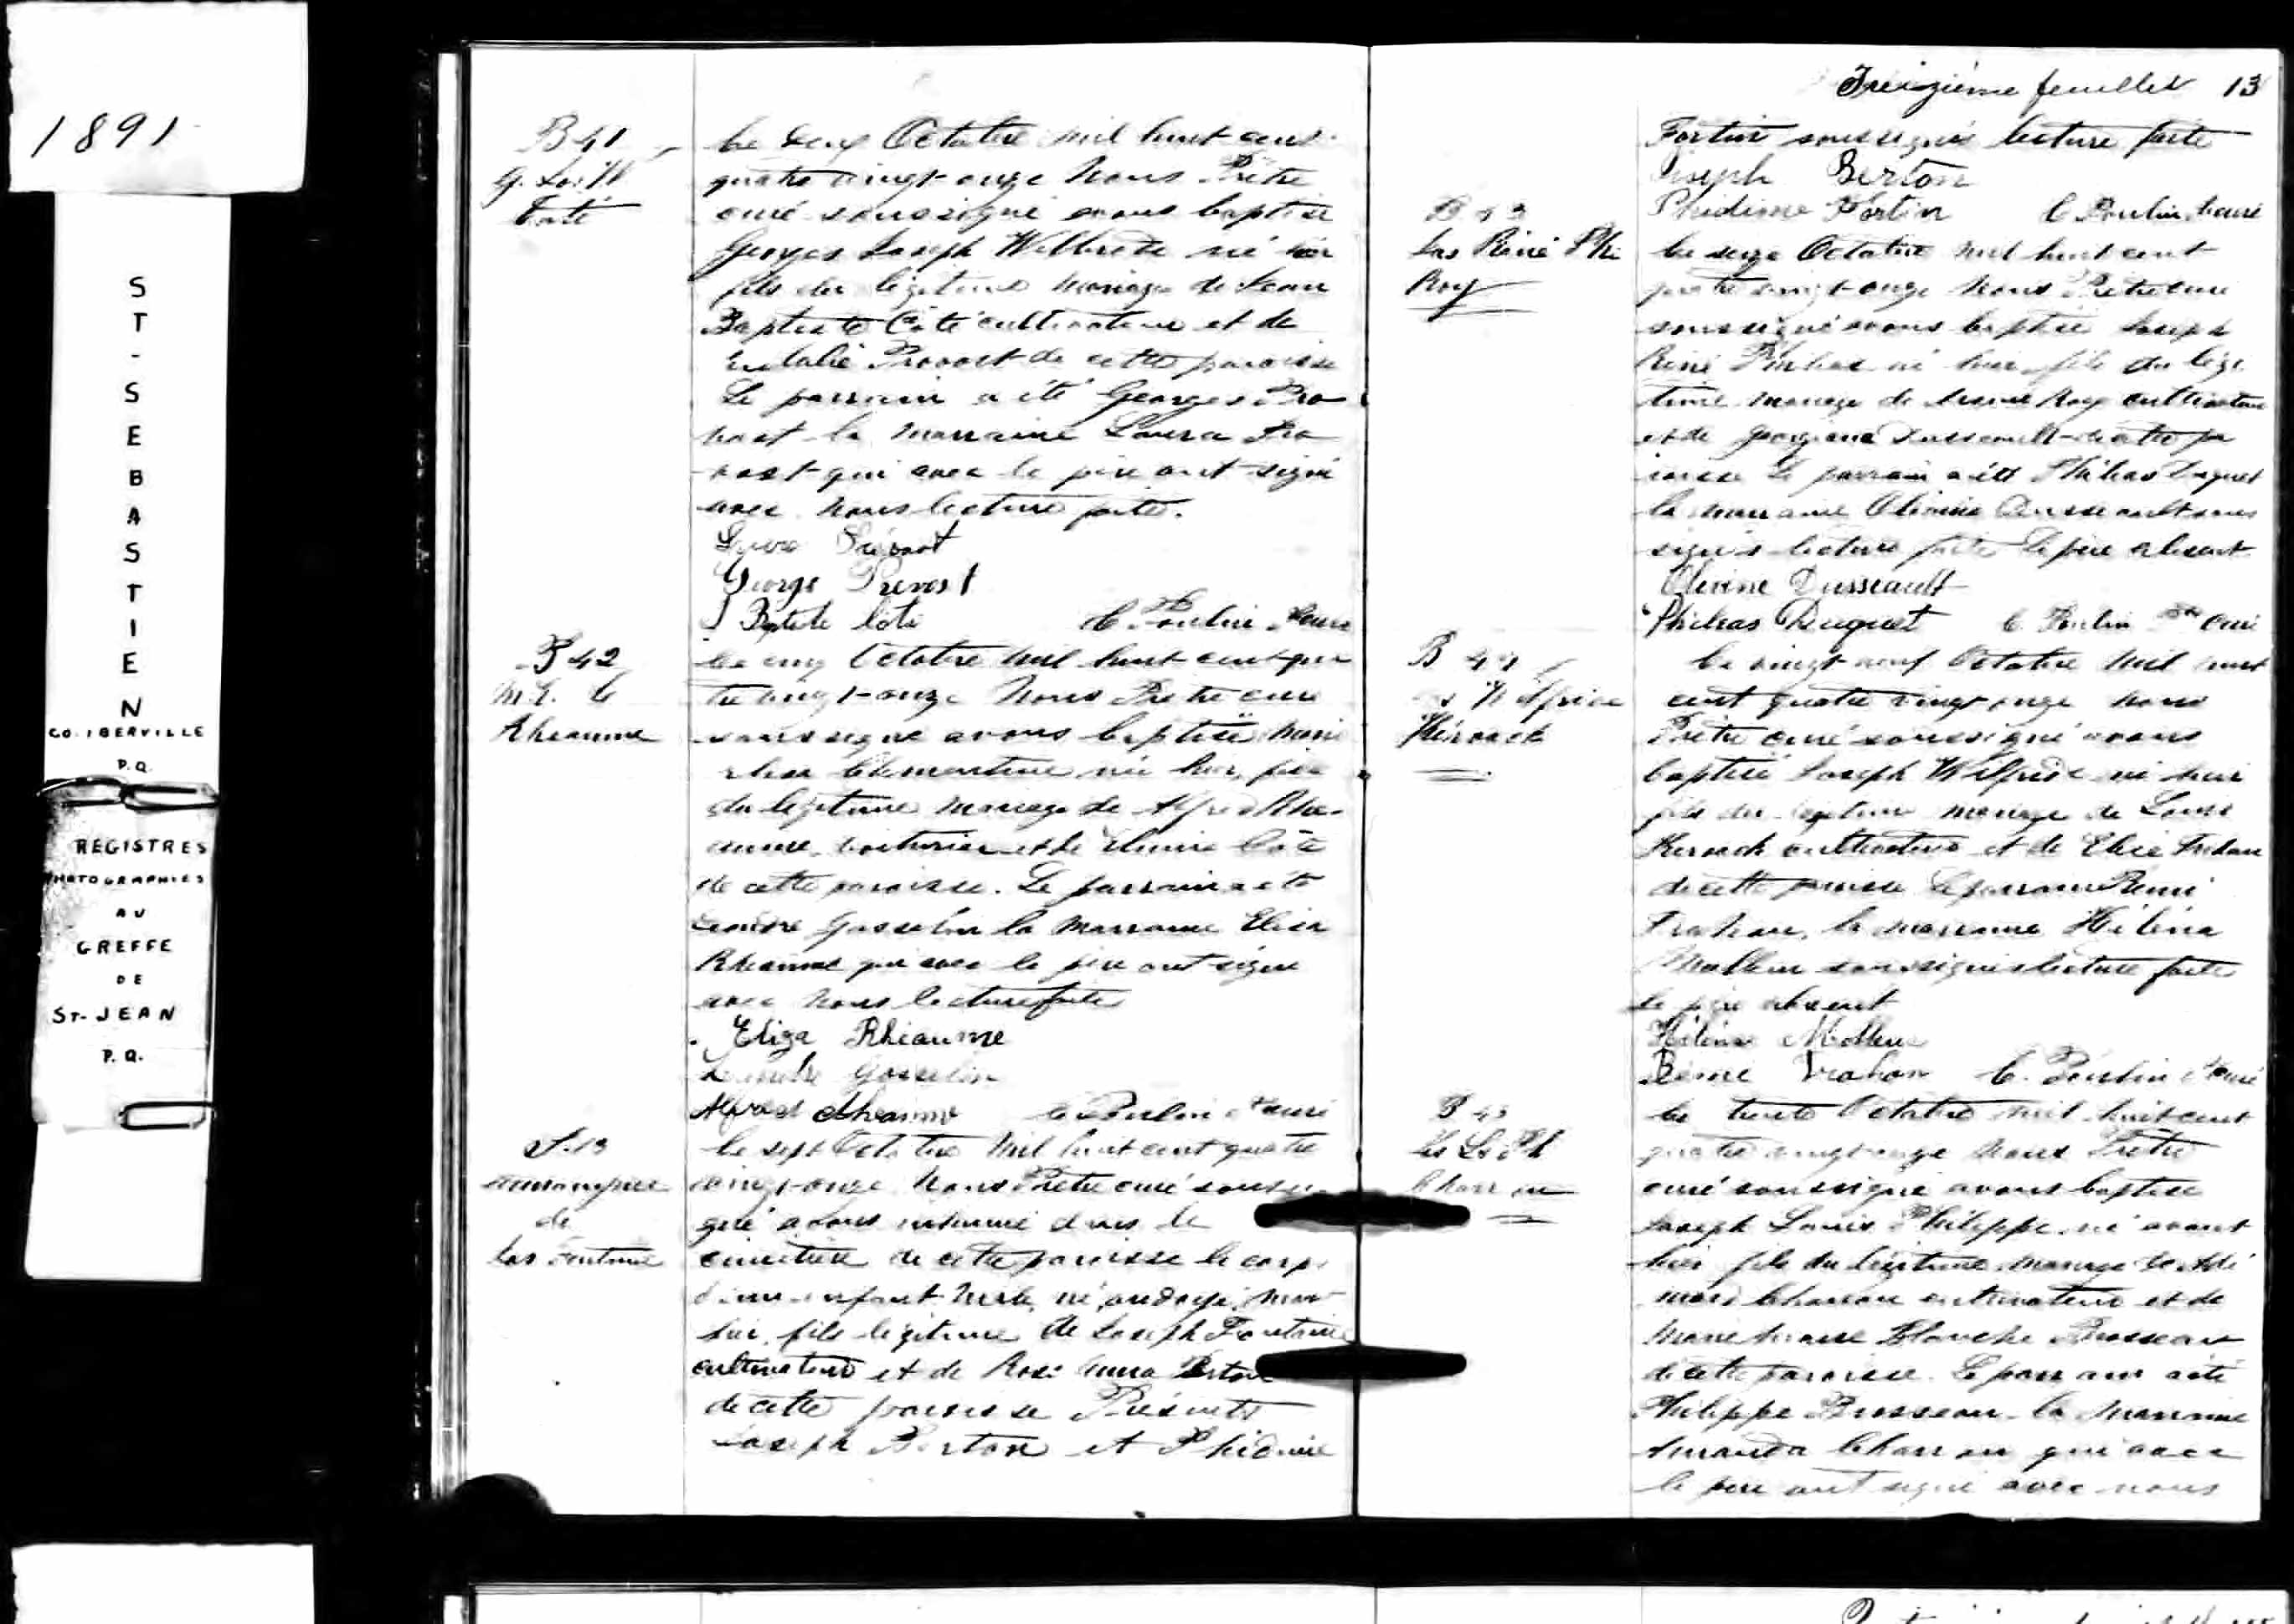 1891
ST-SEBASTIEN
CO. IBERVILLE
P.Q.
REGISTRES
PHOTOGRAPHIES
AU
GREFFE
DE
ST-JEAN
P.Q.
B 41
G. Jos. W
Coté
Le deux Octobre mil huit cent
quatre vingt-onze Nous Prêtre
curé soussigné avons baptisé
Georges Joseph Willbrode né hier
fils du légitime mariage de Jean
Baptiste Côté cultivateur et de
Eulalie Provost de cette paroisse
Le parrain a été Georges Pro
vost la marraine Laura Pro
vost qui avec le père ont signé
avec nous lecture faite.
Laura Prévost
George Prevost
J Bptste Côté C. Poulin Ptre curé
B 42
M. C.
Rheaume
Le cinq Octobre mil huit cent qua
tre vingt-onze Nous Prêtre curé
soussigné avons baptisé Marie
Clementine née hier, fille
du légitime mariage de Alfred Rhe-
aume, voiturier et de Elmire Côté
de cette paroisse. Le parrain a été
Leandre Gosselin la marraine Eliza
Rheaume qui avec le père ont signé
avec nous lecture faite
Eliza Rhéaume
Leandre Gosselin
Alfred Rheaume C. Poulin Ptre curé
S. 13
Anonyme
de
Jos Fontaine
Le sept Octobre mil huit cent quatre
vingt-onze Nous Prêtre curé soussi
gné avons inhumé dans le
cimetière de cette paroisse le corps
d'un enfant mâle, né, ondoyé, mort
hier, fils légitime de Joseph Fontaine
cultivateur et de Rose Anna Berton
de cette paroisse Présents
Joseph Berton et Phidime
Treizième feuillet 13
Fortin soussignés lecture faite
Joseph Berton
Phidime Fortin C. Poulin Ptre curé
B 43
Jos René Phi
Roy
Le seize Octobre mil huit cent
quatre vingt-onze Nous Prêtre curé
soussigné avons baptisé Joseph
René Philias né hier, fils du légi
time mariage de Roy cultivateur
et de Georgiana Dusseault de cette pa
roisse Le parrain a été Philias Duquet
la marraine Olivine Dusseault sous
signés lecture faite le père absent
Olivine Dusseault
Philias Duquet C. Poulin Ptre curé
B 44
Jos Wilfride
Kéroack
Le vingt neuf Octobre mil huit
cent quatre vingt onze nous
Prêtre curé soussigné avons
baptisé Joseph Wilfride né hier
fils du légitime mariage de Louis
Keroack cultivateur et de Elise Trahan
de cette paroisse Le parrain Rémi
Trahan, la marraine Hélèna
Molleur soussignés lecture faite
le père absent
Hélèna Molleur
Rémie Trahan C. Poulin Ptre curé
B 45
Jos Ls Ph
Charron
Le trente Octobre mil huit cent
quatre vingt-onze Nous Prêtre
curé soussigné avons baptisé
Joseph Louis Philippe, né avant
hier fils du légitime mariage de Adé
mard Charron cultivateur et de
Marie Louise Blanche Brosseau
de cette paroisse. Le parrain a été
Philippe Brosseau la marraine
Amanda Charron qui avec
le père ont signé avec nous